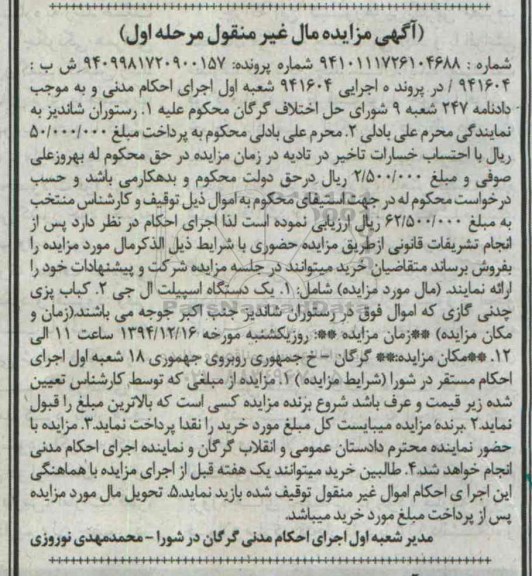 (آگهی مزایده مال غیر منقول مرحله اول)
شماره : ۹۴۱۰۱۱۱۷۲۶۱۰۴۶۸۸ شماره پرونده: ۹۴۰۹۹۸۱۷۲۰۹۰۰۱۵۷ ش ب :
۹۴۱۶۰۴ / در پرونده اجرایی ۹۴۱۶۰۴ شعبه اول اجرای احکام مدنی و به موجب
دادنامه ۲۴۷ شعبه ۹ شورای حل اختلاف گرگان محکوم علیه ۱. رستوران شاندیز به
نمایندگی محرم علی بادلی ۲. محرم علی بادلی محکوم به پرداخت مبلغ ۵۰/۰۰۰/۰۰۰
ریال با احتساب خسارات تاخیر در تادیه در زمان مزایده در حق محکوم له بهروزعلی
صوفی و مبلغ ۲/۵۰۰/۰۰۰ ریال درحق دولت محکوم و بدهکارمی باشد و حسب
درخواست محکوم له در جهت استیفای محکوم به اموال ذیل توقیف و کارشناس منتخب
به مبلغ ۶۲/۵۰۰/۰۰۰ ریال ارزیابی نموده است لذا اجرای احکام در نظر دارد پس از
انجام تشریفات قانونی ازطریق مزایده حضوری با شرایط ذیل الذکرمال مورد مزایده را
بفروش برساند متقاضیان خرید میتوانند در جلسه مزایده شرکت و پیشنهادات خود را
ارائه نمایند. (مال مورد مزایده) شامل: ۱. یک دستگاه اسپیلت ال جی ۲. کباب پزی
چدنی گازی که اموال فوق در رستوران شاندیز جنب اکبر جوجه می باشند.(زمان و
مکان مزایده) **زمان مزایده **: روزیکشنبه مورخه ۱۳۹۴/۱۲/۱۶ ساعت ۱۱ الی
۱۲. **مکان مزایده:** گرگان - خ جمهوری روبروی جهموری ۱۸ شعبه اول اجرای
احکام مستقر در شورا (شرایط مزایده ) ۱. مزایده از مبلغی که توسط کارشناس تعیین
شده زیر قیمت و عرف باشد شروع برنده مزایده کسی است که بالاترین مبلغ را قبول
نماید.۲ .برنده مزایده میبایست کل مبلغ مورد خرید را نقدا پرداخت نماید.۳. مزایده با
حضور نماینده محترم دادستان عمومی و انقلاب گرگان و نماینده اجرای احکام مدنی
انجام خواهد شد.۴. طالبین خرید میتوانند یک هفته قبل از اجرای مزایده با هماهنگی
این اجرا ی احکام اموال غیر منقول توقیف شده بازید نماید.۵. تحویل مال مورد مزایده
پس از پرداخت مبلغ مورد خرید میباشد.
مدیر شعبه اول اجرای احکام مدنی گرگان در شورا - محمدمهدی نوروزی